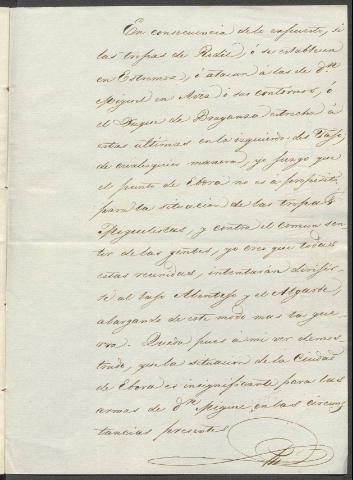 En consecuencia de lo expuesto, si
las tropas de Rodil ó se establecen
en Estremoz, ó atacan á las de Dn.
Miguel en Avea ó sus contornos, ó
el Duque de Braganza estrecha á
estas ultimas en la izquierda del Tajo,
de cualesquiera manera, yo juzgo que
el punto de Ebora no es á proposito
para la situacion de las tropas
Miguelistas, y contra el comun sen-
tir de las gentes, yo creo que todas
estas reunidas, intentarán dirijir-
se al bajo Alentejo y el Algarbe,
alargando de este modo mas la gue-
rra. Queda pues a mi ver demos-
trado, que la situacion de la Ciudad
de Ebora es insignificante para las
armas de Dn. Miguel, en las circuns-
tancias presentes